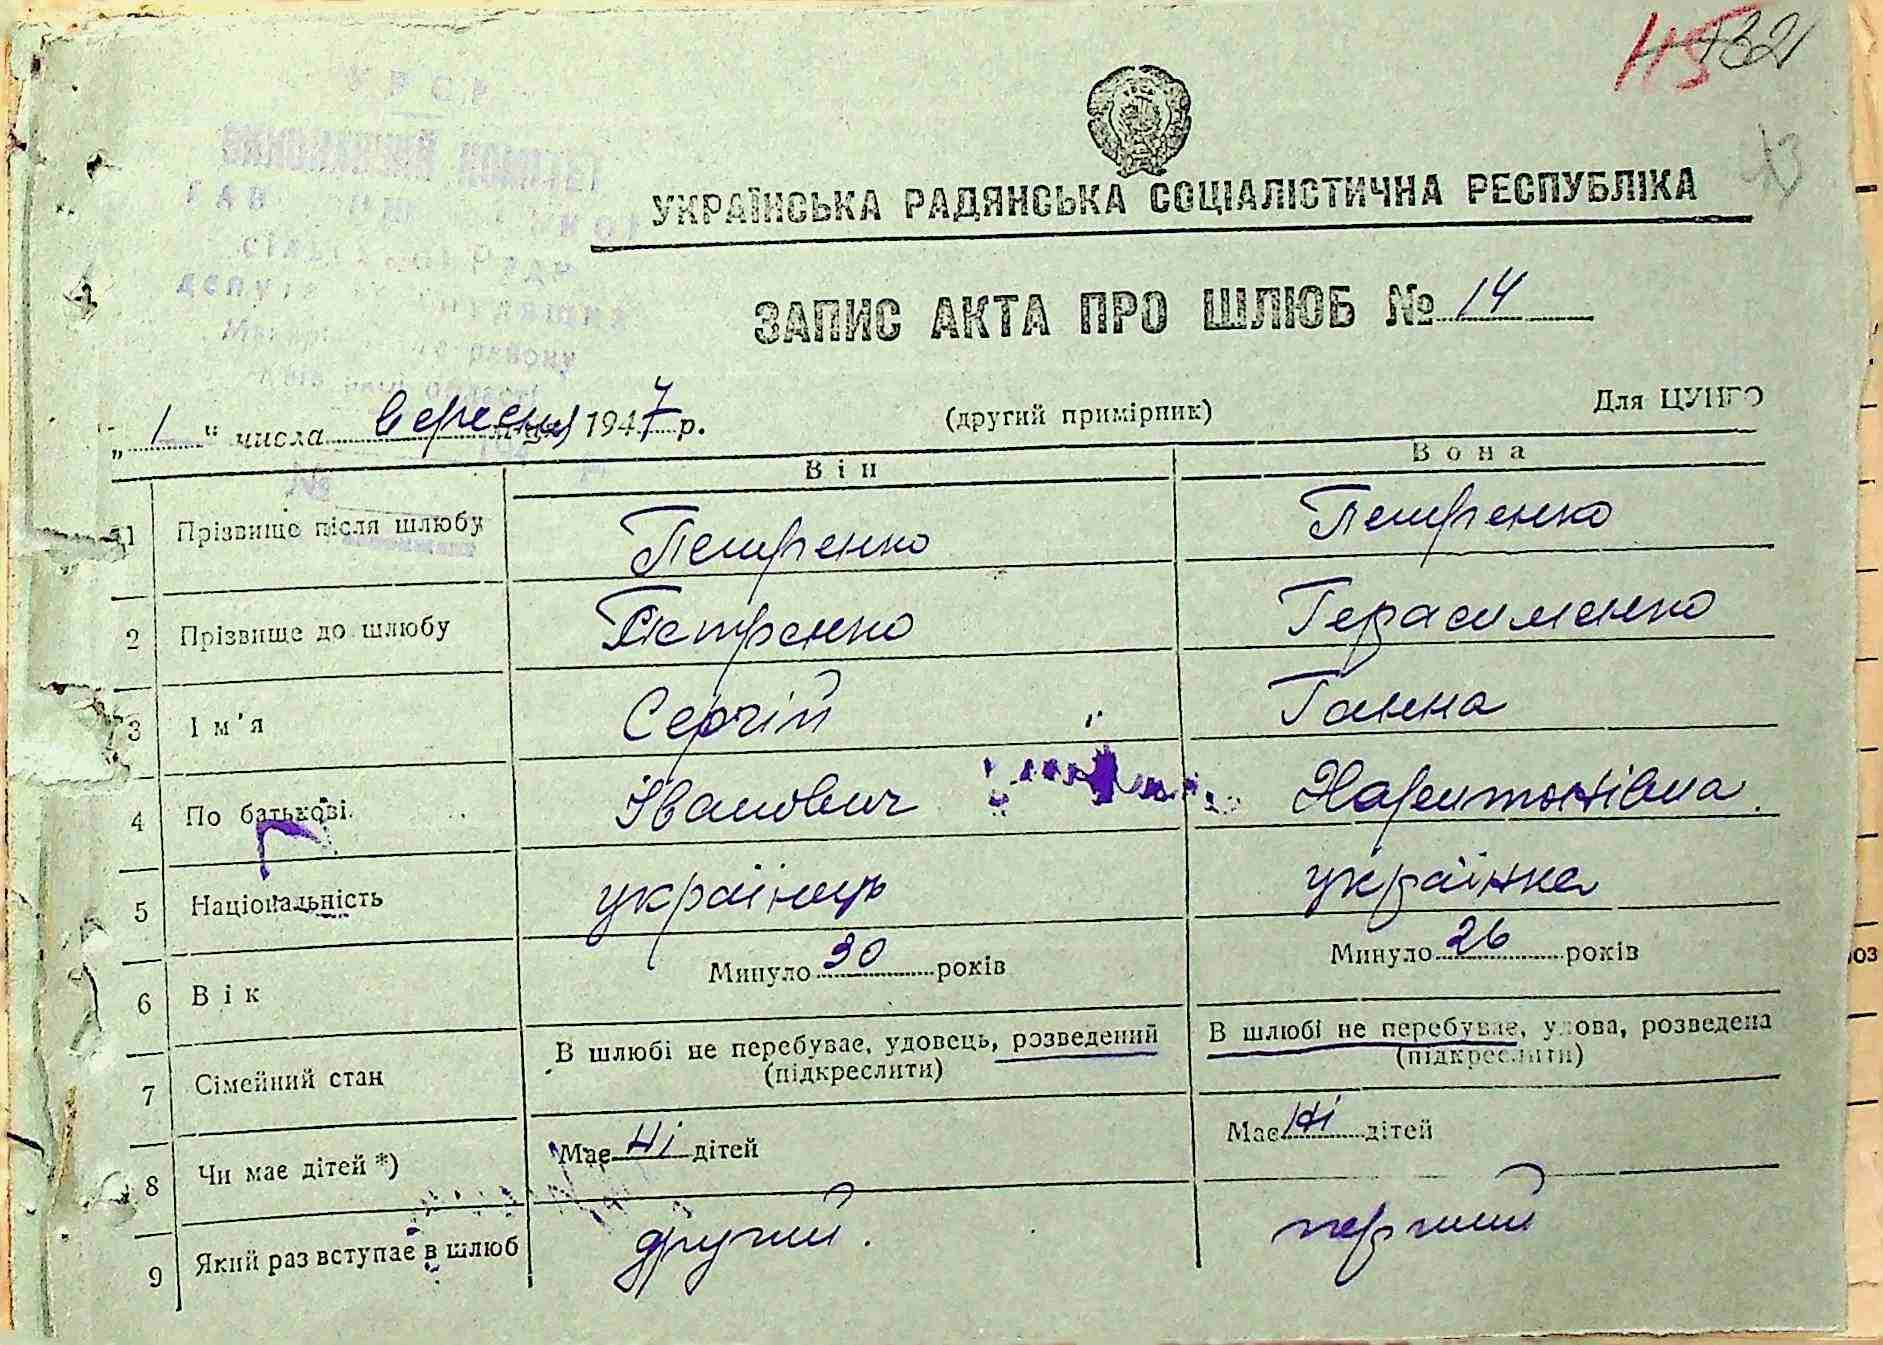 45 132
43
УРСР
ВИКОНАВЧИЙ КОМІТЕТ
депутатів трудящих
району
області
УКРАЇНСЬКА РАДЯНСЬКА СОЦІАЛІСТИЧНА РЕСПУБЛІКА
ЗАПИС АКТА ПРО ШЛЮБ № 14
„ 1 “ числа вересня 1947 р.
(другий примірник)
Для ЦУНГО
Він Вона
1 Прізвище після шлюбу Петренко Петренко
2 Прізвище до шлюбу Петренко Герасименко
3 Ім'я Сергій Ганна
4 По батькові Іванович Харитонівна
5 Національність українець українка
6 Вік Минуло 30 років Минуло 26 років
7 Сімейний стан В шлюбі не перебуває, удовець, розведений В шлюбі не перебуває, удова, розведена
(підкреслити) (підкреслити)
8 Чи має дітей *) Має ні дітей Має ні дітей
9 Який раз вступає в шлюб другий. перший